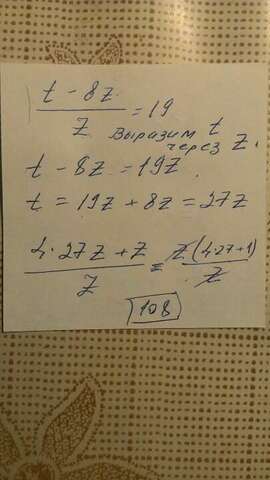 (t - 8z)/z = 19
Выразим t
через z.
t - 8z = 19z.
t = 19z + 8z = 27z
(4·27z + z)/z = z(4·27+1)/z
108